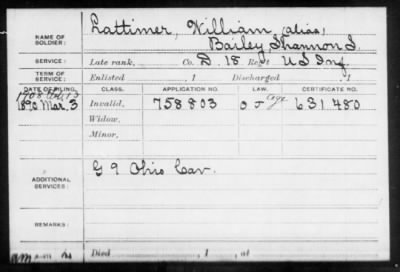 NAME OF SOLDIER: Lattimer, William (alias)
Bailey Shannon S.
SERVICE: Late rank, Co. D. 18 Reg't U S Inf.
TERM OF SERVICE: Enlisted , 1 Discharged , 1
DATE OF FILING. CLASS. APPLICATION NO. LAW. CERTIFICATE NO.
1890 Mar. 3 Invalid, 758803 631480
Widow,
Minor,
ADDITIONAL SERVICES: G 9 Ohio Cav.
REMARKS:
Died , 1 , at